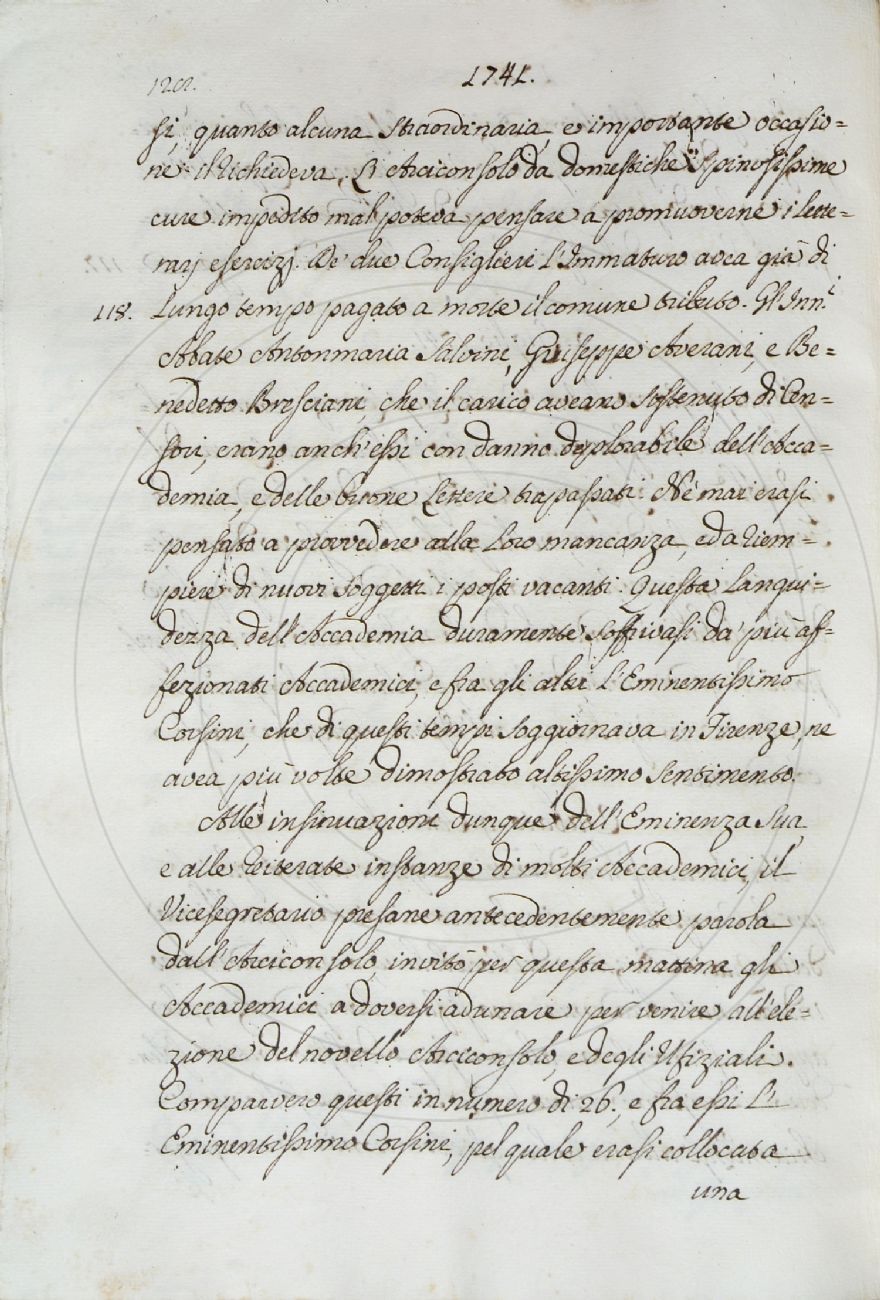 1741.
si, quanto alcuna straordinaria, e importante occasio=
ne il richiedeva. L'Arciconsolo da domestiche spinosissime
cure impedito mal poteva pensare a promuoverne i lette=
rarj esercizj. De' due Consiglieri l'Immaturo avea già di
118. lungo tempo pagato a morte il comune tributo. Gl'Inn.i
Abate Antonmaria Salvini, Giuseppe Averani, e Be=
nedetto Bresciani, che il carico aveano sostenuto di Cen=
sori, erano anch'essi con danno deplorabile dell'Acca=
demia, e delle buone Lettere trapassati. Nè mai erasi
pensato a provvedere alla loro mancanza, ed a riem=
piere di nuovi soggetti i posti vacanti. Questa langui=
dezza dell'Accademia duramente soffrivasi da' più af=
fezionati Accademici, e fra gli altri l'Eminentissimo
Corsini, che di questi tempi soggiornava in Firenze, ne
avea più volte dimostrato altissimo sentimento.
Alle insinuazioni dunque dell'Eminenza Sua,
e alle reiterate instanze di molti Accademici, il
Vicesegretario presane antecedentemente parola
dall'Arciconsolo, invitò per questa mattina gli
Accademici a doversi adunare per venire all'ele=
zione del novello Arciconsolo, e degli Ufiziali.
Comparvero questi in numero di 26., e fra essi l'
Eminentissimo Corsini, pel quale erasi collocata
una